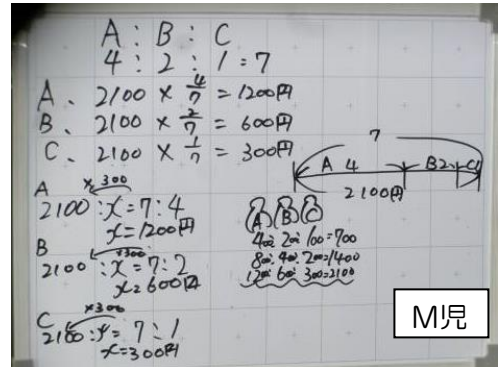 A : B : C
4 : 2 : 1 = 7
A、 2100 × 4/7 = 1200円
B、 2100 × 2/7 = 600円
C、 2100 × 1/7 = 300円
7
A 4 B2 C1
2100円
A
×300
2100 : x = 7 : 4
x = 1200円
B
×300
2100 : x = 7 : 2
x = 600円
C
×300
2100 : x = 7 : 1
x = 300円
A B C
400 : 200 : 100 = 700
800 : 400 : 200 = 1400
1200 : 600 : 300 = 2100
M児